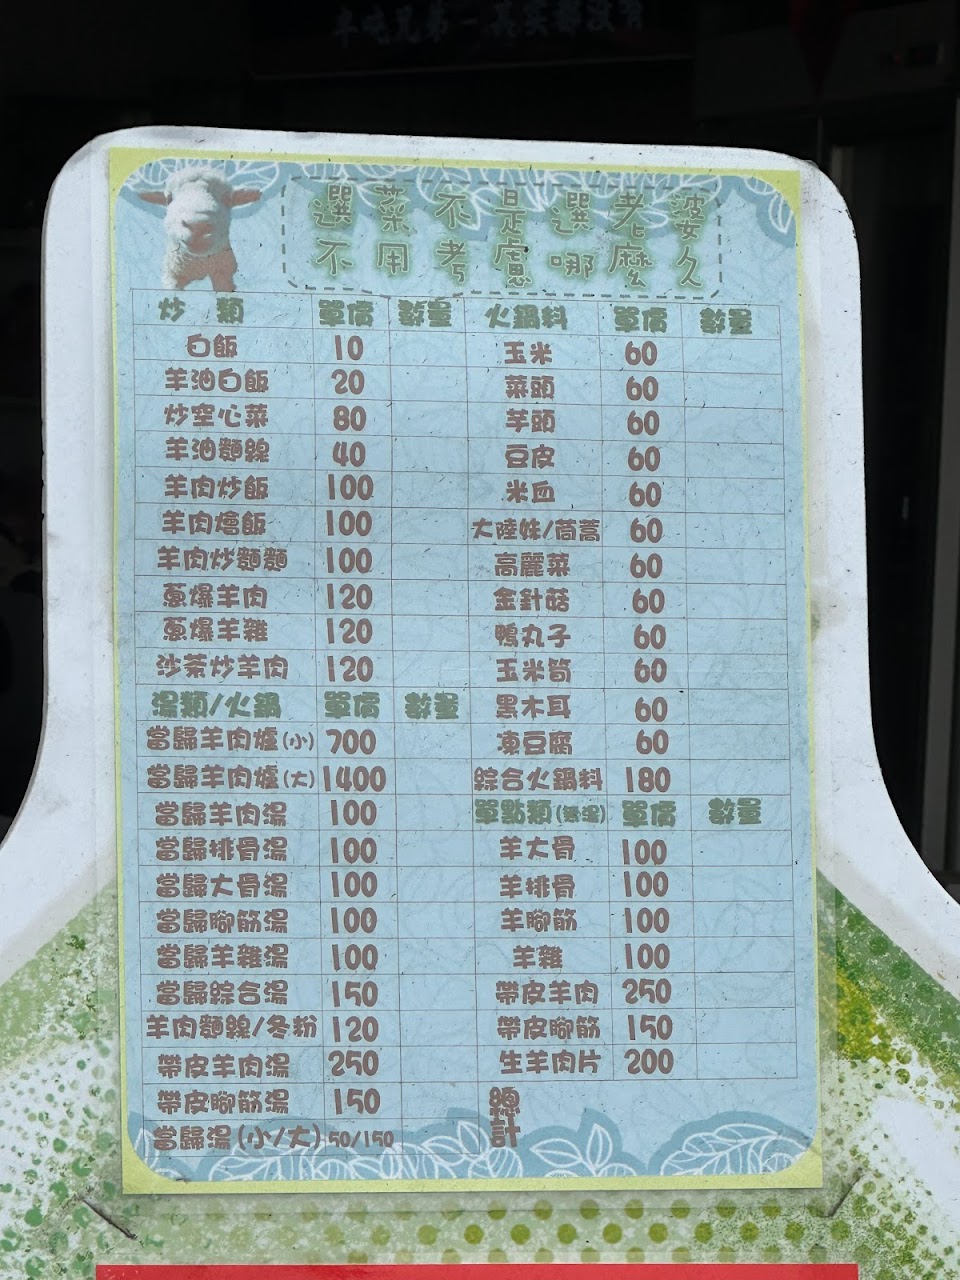 選菜不是選老婆
不用考慮哪麼久
炒類 單價 數量 火鍋料 單價 數量
白飯 10 玉米 60
羊油白飯 20 菜頭 60
炒空心菜 80 芋頭 60
羊油麵線 40 豆皮 60
羊肉炒飯 100 米血 60
羊肉燴飯 100 大陸妹/茼蒿 60
羊肉炒麵麵 100 高麗菜 60
蔥爆羊肉 120 金針菇 60
蔥爆羊雜 120 鴨丸子 60
沙茶炒羊肉 120 玉米筍 60
湯類/火鍋 單價 數量 黑木耳 60
當歸羊肉爐(小) 700 凍豆腐 60
當歸羊肉爐(大) 1400 綜合火鍋料 180
當歸羊肉湯 100 單點類 單價 數量
當歸排骨湯 100 羊大骨 100
當歸大骨湯 100 羊排骨 100
當歸腳筋湯 100 羊腳筋 100
當歸羊雜湯 100 羊雜 100
當歸綜合湯 150 帶皮羊肉 250
羊肉麵線/冬粉 120 帶皮腳筋 150
帶皮羊肉湯 250 生羊肉片 200
帶皮腳筋湯 150 總計
當歸湯(小/大) 50/150